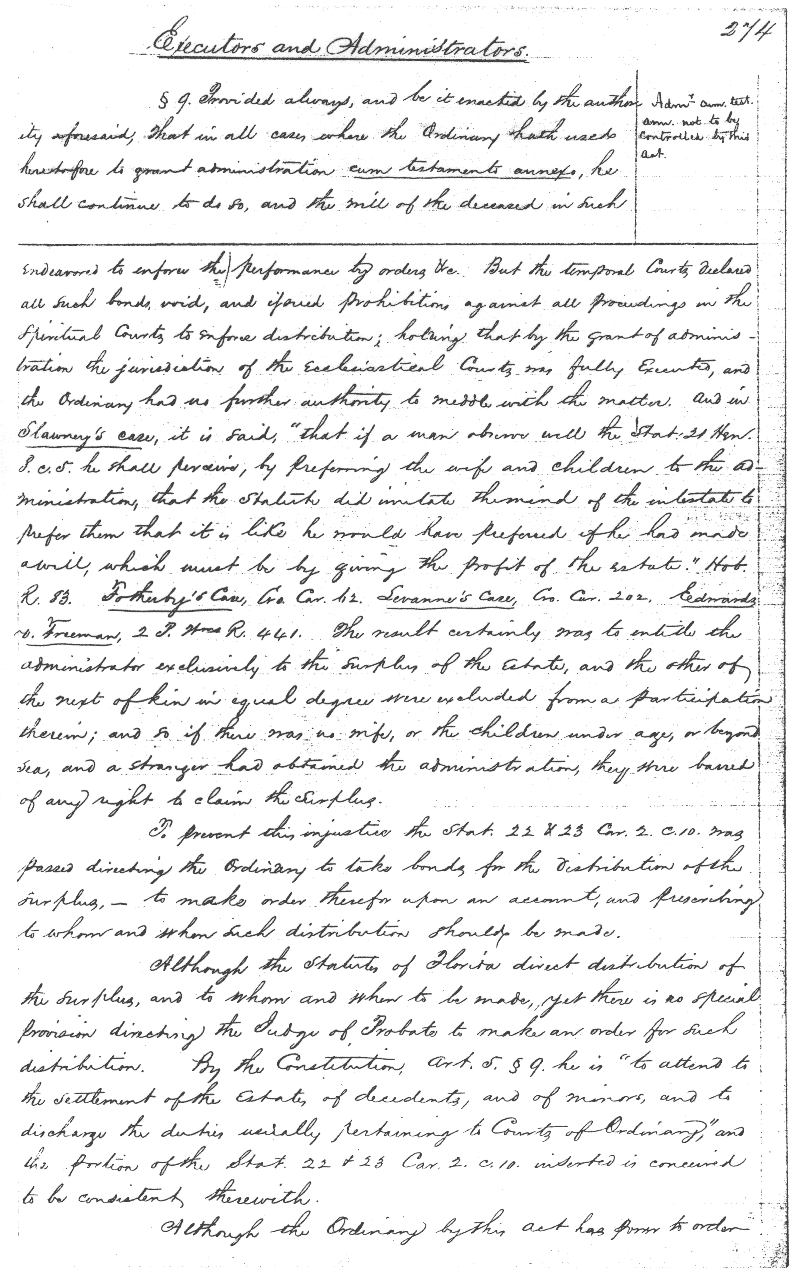 274
Executors and Administrators.
§ 9. Provided always, and be it enacted by the author
ity aforesaid, that in all cases where the Ordinary hath used
heretofore to grant administration cum testamento annexo, he
shall continue to do so, and the will of the deceased in such
Admr. cum. test.
ann. not to by
controlled by this
act.
endeavored to enforce the performance by orders &c. But the temporal Courts declared
all such bonds void, and issued prohibitions against all proceedings in the
Spiritual Courts to enforce distribution; holding that by the grant of adminis-
tration the jurisdiction of the Ecclesiastical Courts was fully Executed, and
the Ordinary had no further authority to meddle with the matter. And in
Slawney's case, it is said, "that if a man observe well the Stat. 21 Hen.
8. c. 5. he shall perceive, by preferring the wife and children to the ad-
ministration, that the Statute did imitate the mind of the intestate to
prefer them that it is like he would have preferred if he had made
a will, which must be by giving the profit of the estate." Hob.
R. 83. Fotherby's Case, Cro. Car. 62. Levanne's Case, Cro. Car. 202. Edwards
v. Freeman, 2 P. Wms R. 441. The result certainly was to entitle the
administrator exclusively to the surplus of the Estate, and the other of
the next of kin in equal degree were excluded from a participation
therein; and so if there was no wife, or the children under age, or beyond
sea, and a stranger had obtained the administration, they were barred
of any right to claim the surplus.
To prevent this injustice the Stat. 22 & 23 Car. 2. c. 10. was
passed directing the Ordinary to take bonds for the distribution of the
surplus, — to make order therefor upon an account, and prescribing
to whom and when such distribution should be made.
Although the Statutes of Florida direct distribution of
the surplus, and to whom and when to be made, yet there is no special
provision directing the Judge of Probate to make an order for such
distribution. By the Constitution, Art. 5. § 9. he is "to attend to
the settlement of the Estates of decedents, and of minors, and to
discharge the duties usually pertaining to Courts of Ordinary," and
the portion of the Stat. 22 & 23 Car. 2. c. 10. inserted is conceived
to be consistent therewith.
Although the Ordinary by this act has power to order